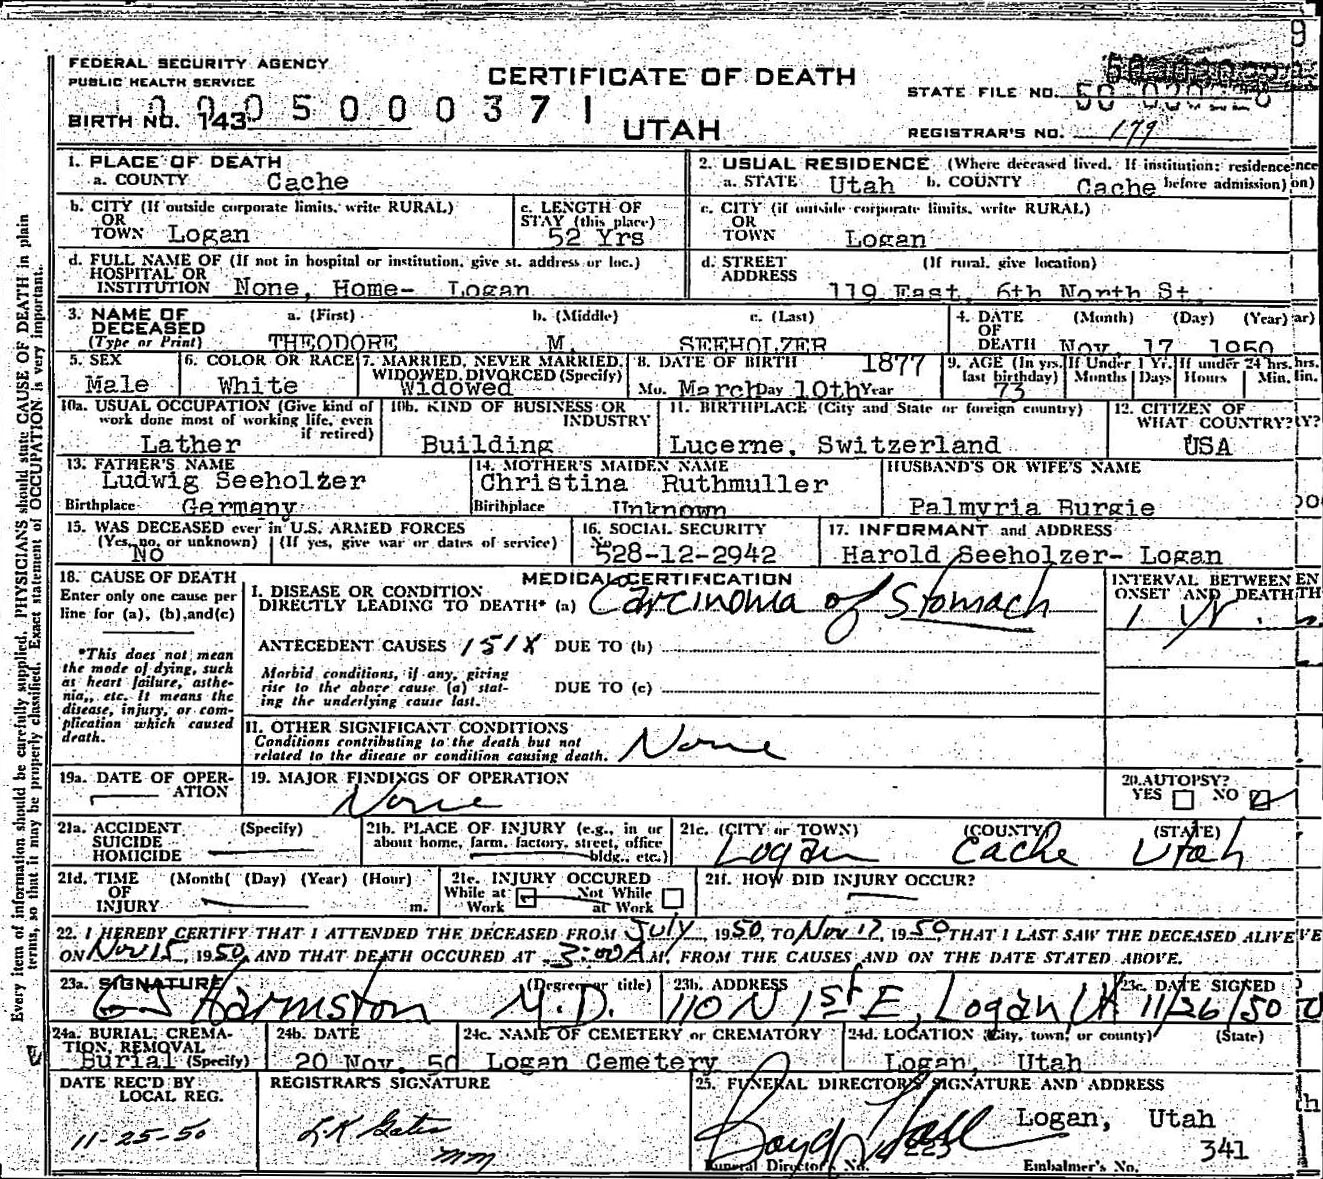 9
FEDERAL SECURITY AGENCY
PUBLIC HEALTH SERVICE
CERTIFICATE OF DEATH
STATE FILE NO.
BIRTH NO. 143 0 5 0 0 0 3 7 1
UTAH
REGISTRAR'S NO. 179
1. PLACE OF DEATH
a. COUNTY Cache
2. USUAL RESIDENCE (Where deceased lived. If institution: residence nce
a. STATE Utah b. COUNTY Cache before admission) on)
b. CITY (If outside corporate limits, write RURAL)
OR
TOWN Logan
c. LENGTH OF
STAY (this place)
52 Yrs
c. CITY (if outside corporate limits, write RURAL)
OR
TOWN Logan
d. FULL NAME OF (If not in hospital or institution, give st. address or loc.)
HOSPITAL OR
INSTITUTION None, Home- Logan
d. STREET (If rural, give location)
ADDRESS
119 East, 6th North St.
3. NAME OF DECEASED
(Type or Print)
a. (First) b. (Middle) c. (Last)
THEODORE M. SEEHOLZER
4. DATE OF DEATH (Month) (Day) (Year) ar)
Nov. 17 1950
5. SEX
Male
6. COLOR OR RACE
White
7. MARRIED, NEVER MARRIED,
WIDOWED, DIVORCED (Specify)
Widowed
8. DATE OF BIRTH 1877
Mo. March Day 10th Year
9. AGE (In yrs. last birthday) 73
If Under 1 Yr. Months Days
If under 24 hrs. hrs.
Hours Min. lin.
10a. USUAL OCCUPATION (Give kind of
work done most of working life, even
if retired)
Lather
10b. KIND OF BUSINESS OR
INDUSTRY
Building
11. BIRTHPLACE (City and State or foreign country)
Lucerne, Switzerland
12. CITIZEN OF
WHAT COUNTRY? Y?
USA
13. FATHER'S NAME
Ludwig Seeholzer
Birthplace Germany
14. MOTHER'S MAIDEN NAME
Christina Ruthmuller
Birthplace Unknown
HUSBAND'S OR WIFE'S NAME
Palmyria Burgie
15. WAS DECEASED ever in U.S. ARMED FORCES
(Yes, no, or unknown) (If yes, give war or dates of service)
No
16. SOCIAL SECURITY
No.
528-12-2942
17. INFORMANT and ADDRESS
Harold Seeholzer- Logan
18. CAUSE OF DEATH
Enter only one cause per
line for (a), (b), and (c)
*This does not mean
the mode of dying, such
as heart failure, asthe-
nia, etc. It means the
disease, injury, or com-
plication which caused
death.
MEDICAL CERTIFICATION
I. DISEASE OR CONDITION
DIRECTLY LEADING TO DEATH* (a) Carcinoma of Stomach
ANTECEDENT CAUSES 151X DUE TO (b)
Morbid conditions, if any, giving
rise to the above cause (a) stat-
ing the underlying cause last.
DUE TO (c)
II. OTHER SIGNIFICANT CONDITIONS
Conditions contributing to the death but not
related to the disease or condition causing death.
None
INTERVAL BETWEEN EN
ONSET AND DEATH TH
1 Yr.
19a. DATE OF OPER-
ATION
19. MAJOR FINDINGS OF OPERATION
None
20. AUTOPSY?
YES NO
21a. ACCIDENT (Specify)
SUICIDE
HOMICIDE
21b. PLACE OF INJURY (e.g., in or
about home, farm, factory, street, office
bldg., etc.)
21c. (CITY or TOWN) (COUNTY) (STATE)
Logan Cache Utah
21d. TIME (Month( (Day) (Year) (Hour)
OF
INJURY m.
21e. INJURY OCCURED
While at Work Not While at Work
21f. HOW DID INJURY OCCUR?
22. I HEREBY CERTIFY THAT I ATTENDED THE DECEASED FROM July, 1950, TO Nov 17, 1950, THAT I LAST SAW THE DECEASED ALIVE VE
ON Nov 15, 1950, AND THAT DEATH OCCURED AT 3:00 A M, FROM THE CAUSES AND ON THE DATE STATED ABOVE.
23a. SIGNATURE (Degree or title)
Harmston M.D.
23b. ADDRESS
110 N 1st E, Logan Ut
23c. DATE SIGNED
11/26/50
24a. BURIAL, CREMA-
TION, REMOVAL
Burial (Specify)
24b. DATE
20 Nov. 50
24c. NAME OF CEMETERY or CREMATORY
Logan Cemetery
24d. LOCATION (City, town, or county) (State)
Logan, Utah
DATE REC'D BY
LOCAL REG.
11-25-50
REGISTRAR'S SIGNATURE
mm
25. FUNERAL DIRECTOR'S SIGNATURE AND ADDRESS
Boyd Hall Logan, Utah
223 341
Funeral Director's No. Embalmer's No.
Every item of information should be carefully supplied. PHYSICIANS should state CAUSE OF DEATH in plain
terms, so that it may be properly classified. Exact statement of OCCUPATION is very important.